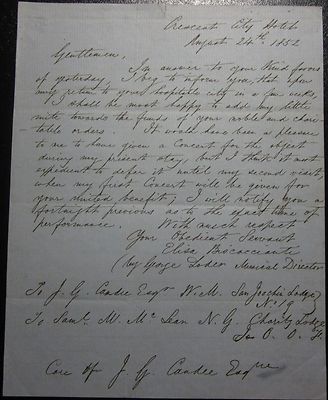 Crescent City Hotel
August 24th, 1852
Gentlemen,
In answer to your kind favor
of yesterday, I beg to inform you, that upon
my return to your hospitable city in a few weeks,
I shall be most happy to add my little
mite towards the funds of your noble and chari-
table orders. It would have been a pleasure
to me to have given a Concert for the object
during my present stay, but I think it most
expedient to defer it until my second visit,
when my first Concert will be given for
your united benefit; I will notify you a
fortnight previous as to the exact time of
performance. With much respect
Your Obedient Servant
Elisa Biscaccianti
(by George Loder Musical Director
To J. G. Candee Esqr W. M. San Joaquin Lodge
No 19
To Saml. M. Mc Lean N. G. Charity Lodge
I. O. O. F.
Care of J. G. Candee Esqre